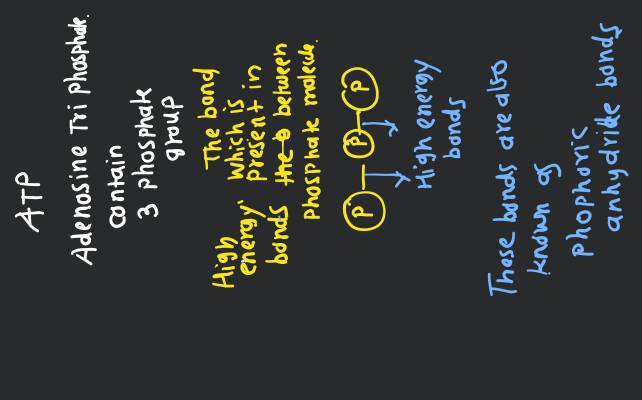 ATP
Adenosine Tri phosphate.
contain
3 phosphate
group
High
energy
bonds
The bond
which is
present in
the between
phosphate molecule.
P P P
High energy
bonds
These bonds are also
known as
phophoric
anhydride bonds